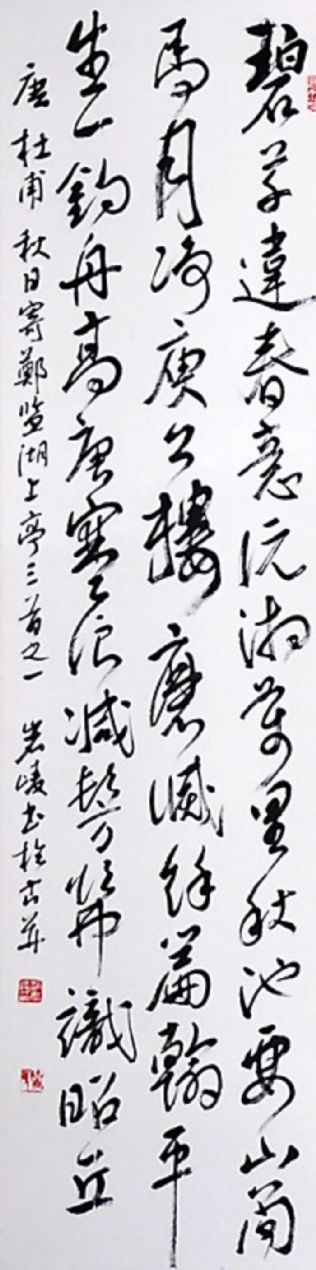 碧草違春意沅湘萬里秋池要山简
馬月净庾公樓磨滅餘篇翰平
生一釣舟高唐寒浪減髣髴識昭丘
唐 杜甫 秋日寄鄭监湖上亭三首之一 书於古并